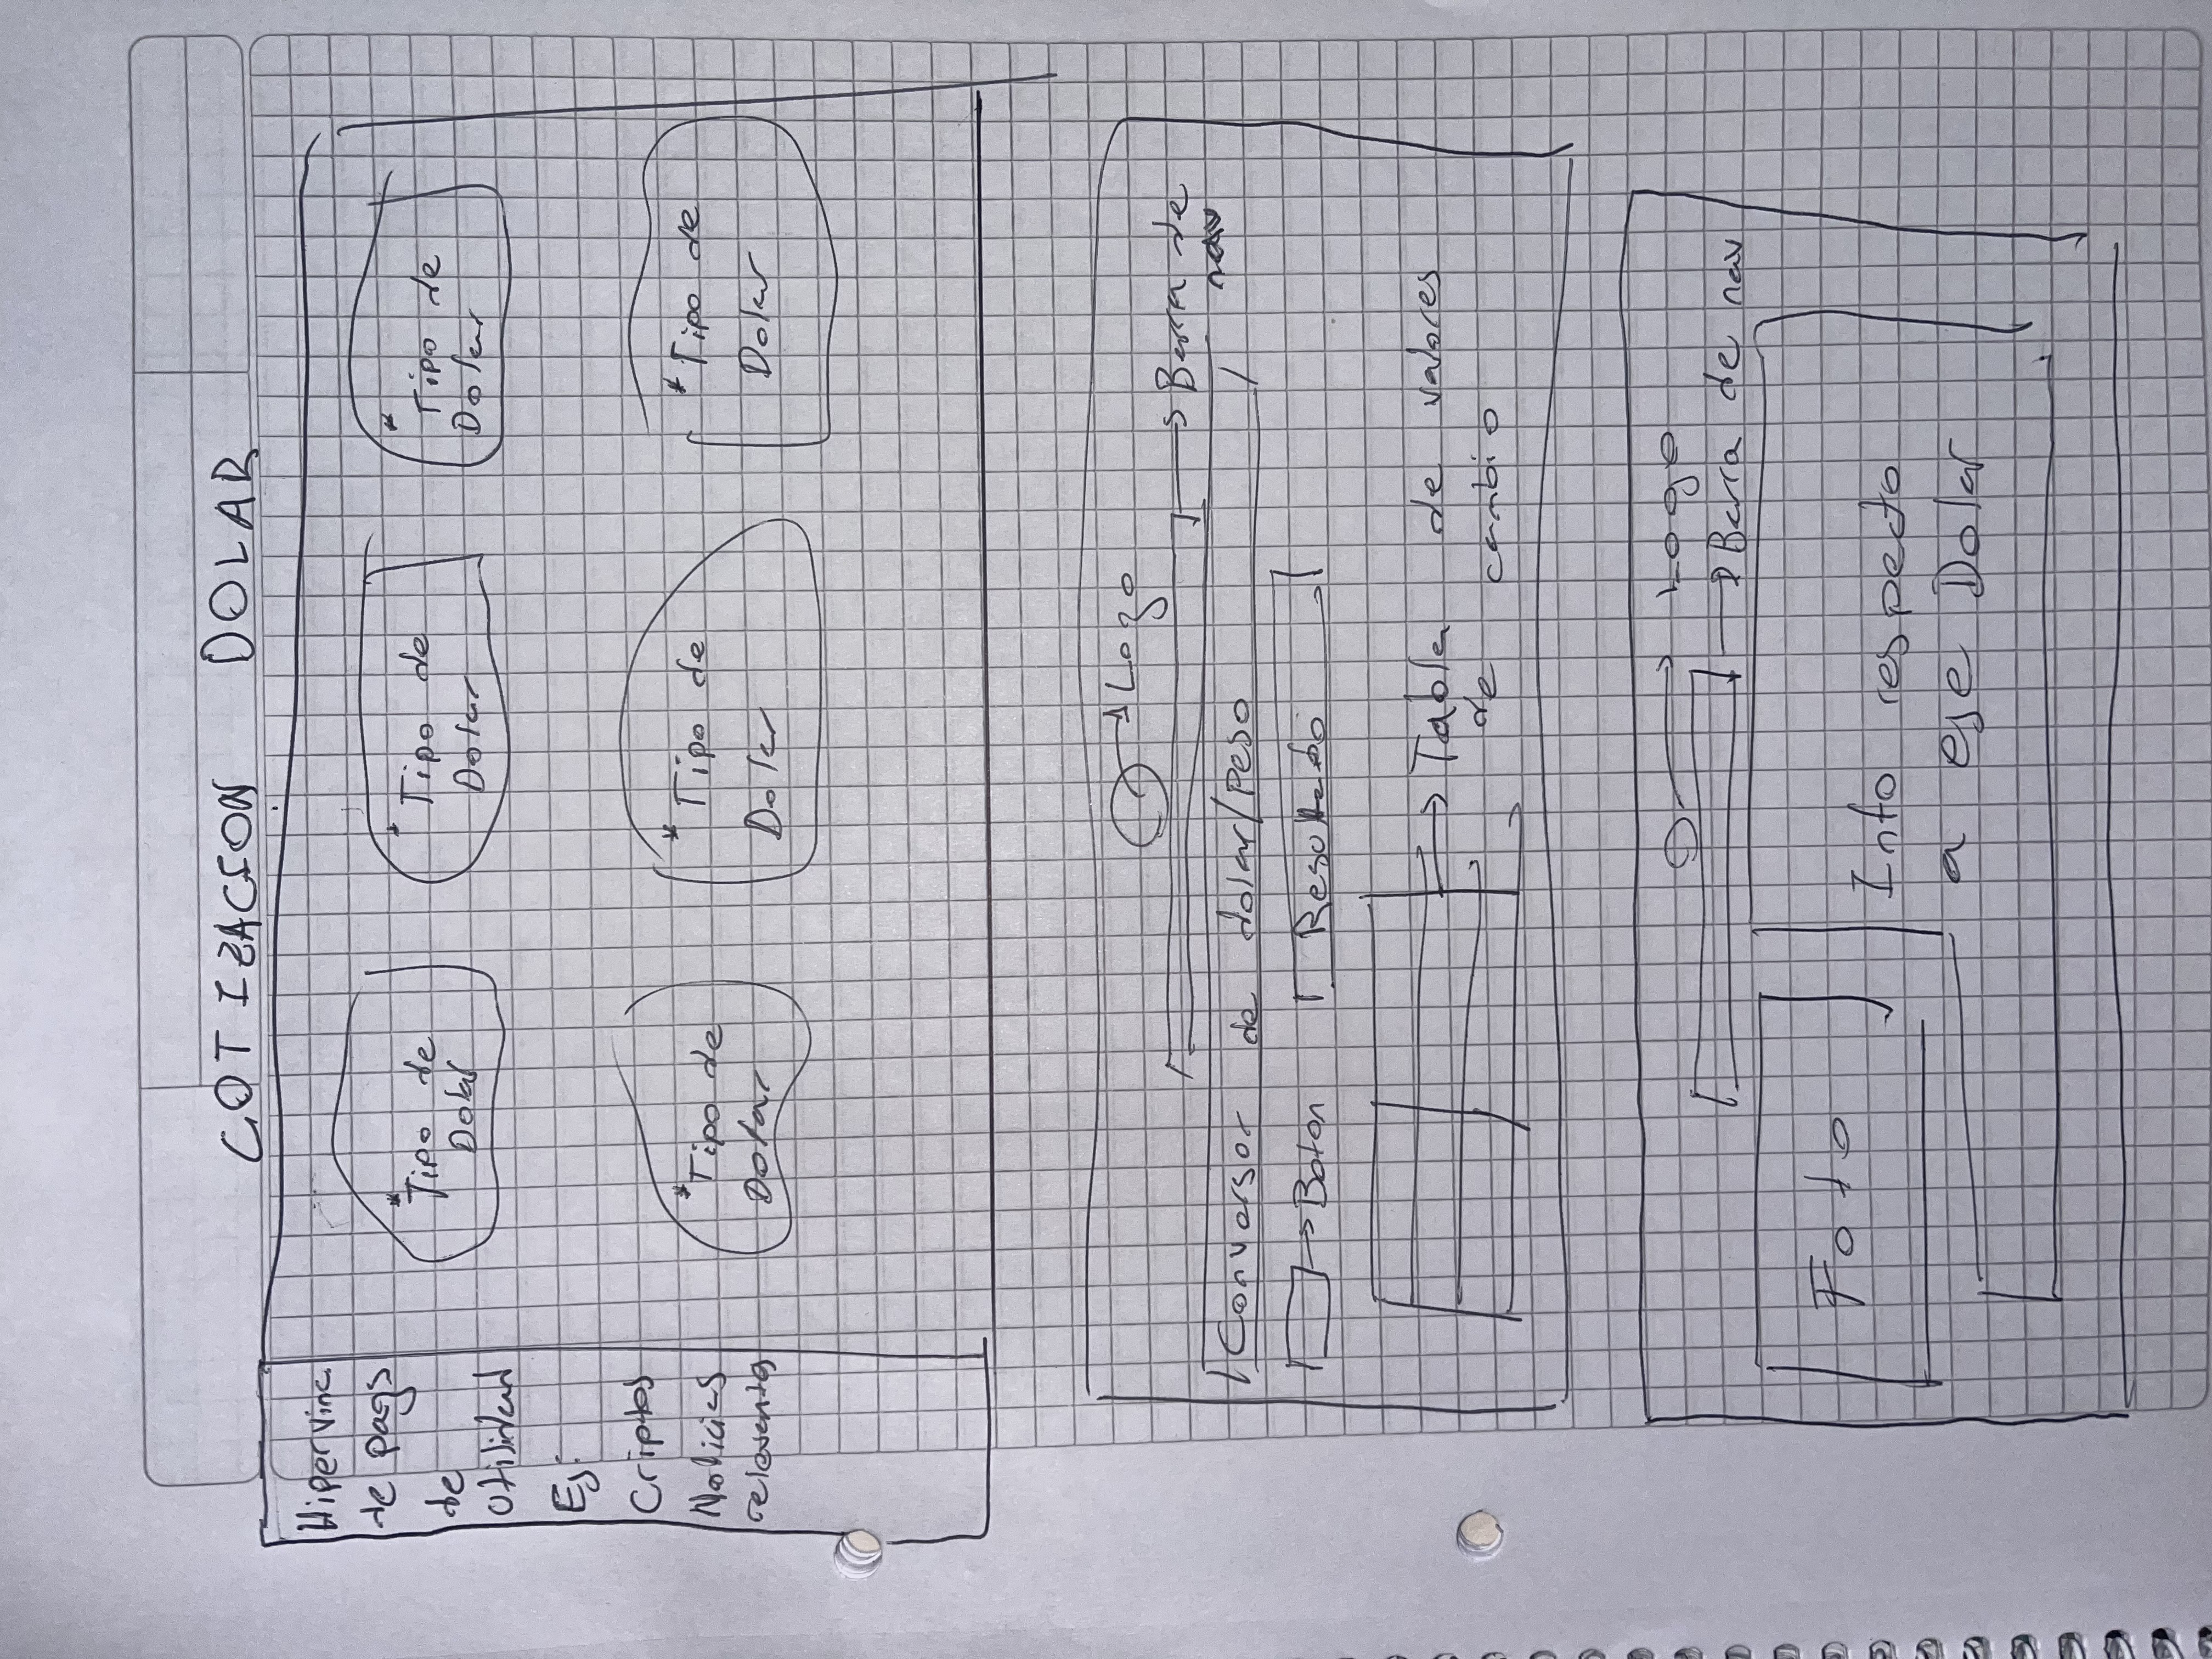 COTIZACION DOLAR
Hipervinc.
de pags
de
Utilidad
Ej:
Criptos
Noticias
relevantes
* Tipo de
Dolar
* Tipo de
Dolar
* Tipo de
Dolar
* Tipo de
Dolar
* Tipo de
Dolar
* Tipo de
Dolar
Logo
Barra de
nav
Conversor de dolar/Peso
Boton
Resultado
Tabla de valores
de cambio
Logo
Barra de nav
Foto
Info respecto
a ese Dolar